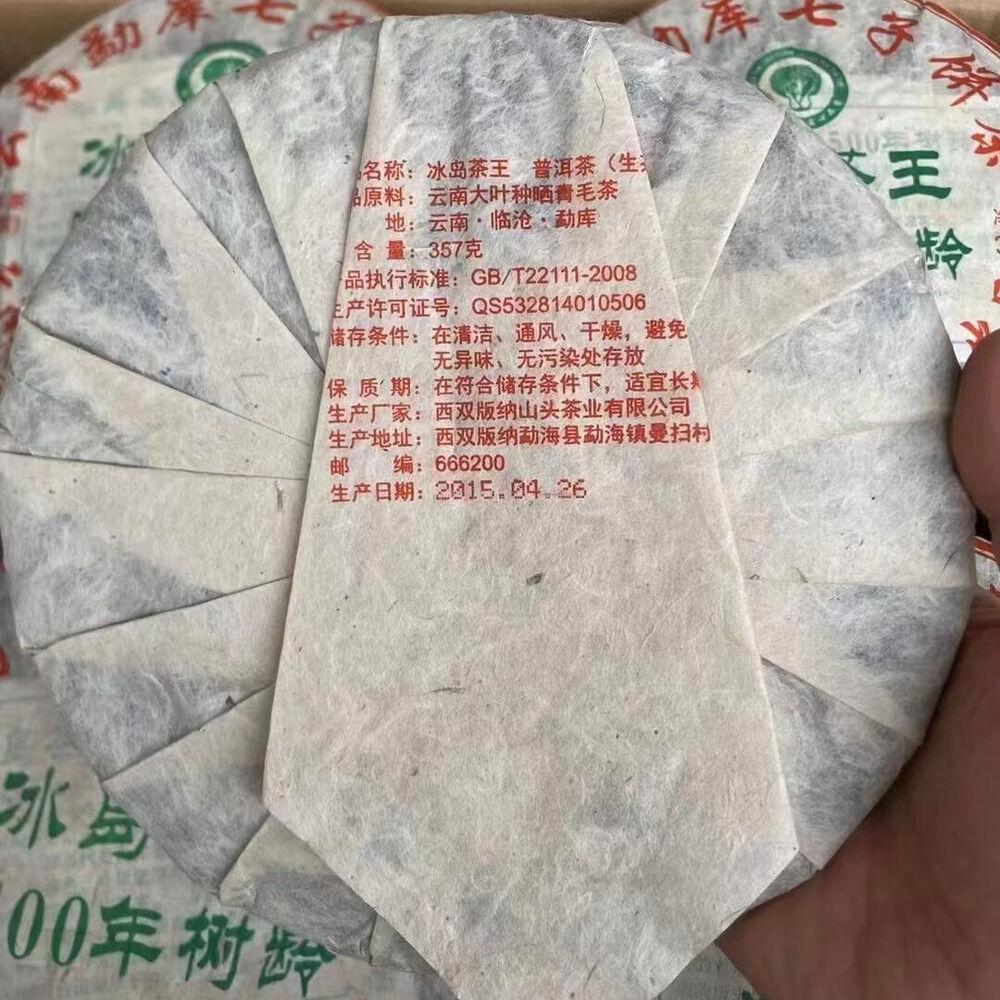 南勐库七子
勐库七子饼茶
冰
茶王
龄
名称：冰岛茶王 普洱茶（生
原料：云南大叶种晒青毛茶
地：云南·临沧·勐库
含 量：357克
品执行标准：GB/T22111-2008
生产许可证号：QS532814010506
储存条件：在清洁、通风、干燥，避免
无异味、无污染处存放
保 质 期：在符合储存条件下，适宜长期
生产厂家：西双版纳山头茶业有限公司
生产地址：西双版纳勐海县勐海镇曼扫村
邮 编：666200
生产日期：2015.04.26
冰岛
00年树龄